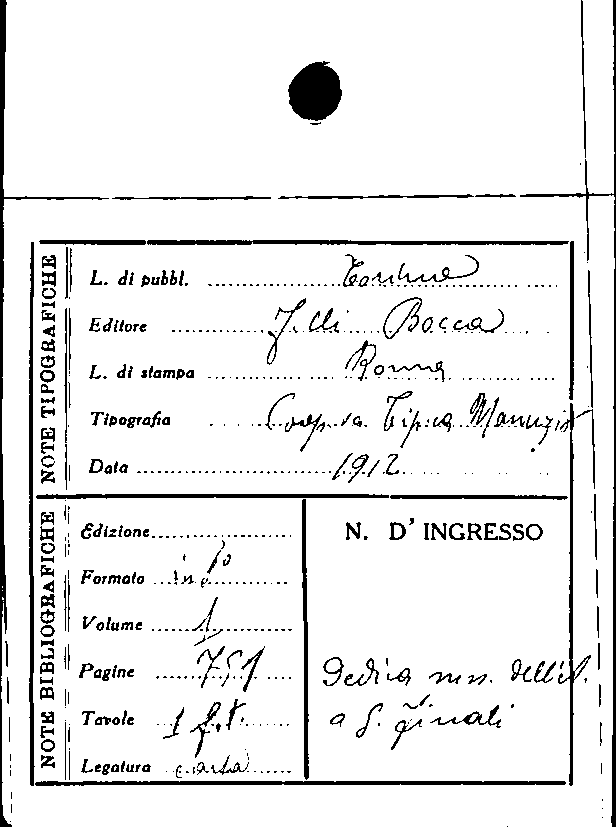 NOTE TIPOGRAFICHE
L. di pubbl. Torino
Editore F.lli Bocca
L. di stampa Roma
Tipografia Coop.va Tip.ca Manuzio
Data 1912
NOTE BIBLIOGRAFICHE
Edizione
Formato in f°
Volume 1
Pagine 751
Tavole 1 f.t.
Legatura carta
N. D' INGRESSO
Dedica mss. dell'A.
a G.